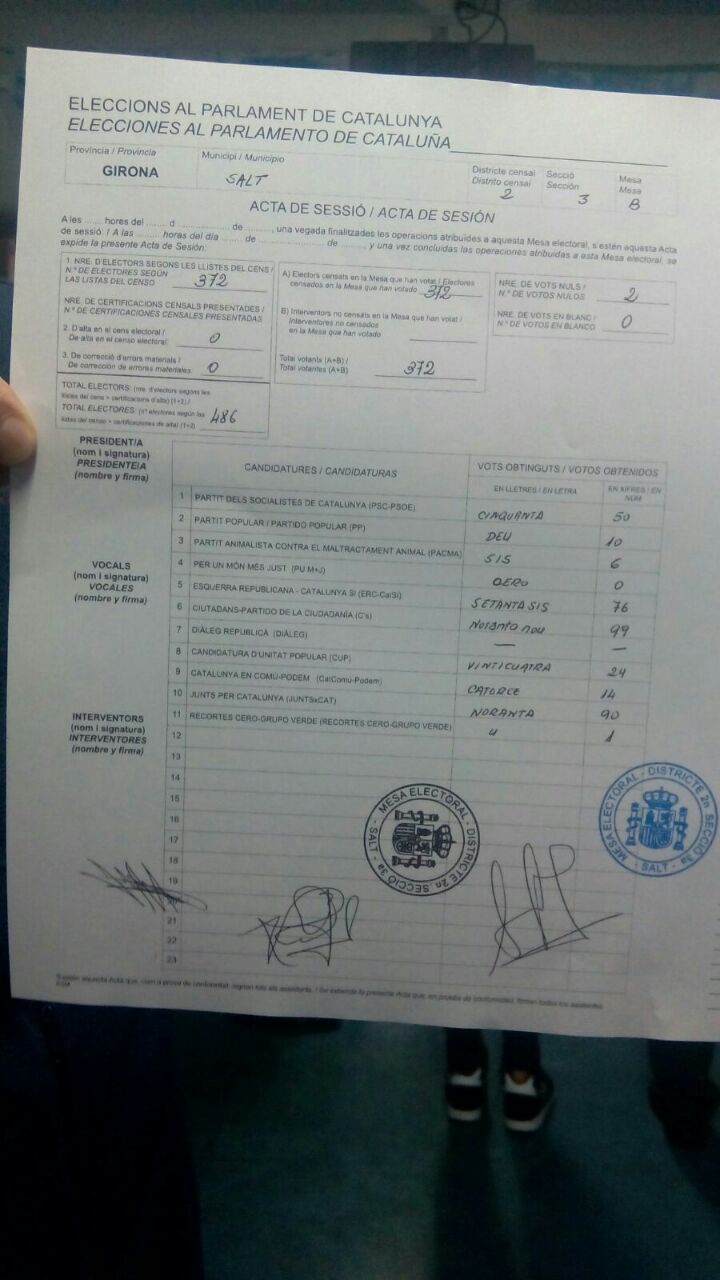 ELECCIONS AL PARLAMENT DE CATALUNYA
ELECCIONES AL PARLAMENTO DE CATALUÑA
Província / Provincia
GIRONA
Municipi / Municipio
SALT
Districte censal
Distrito censal
2
Secció
Sección
3
Mesa
Mesa
B
ACTA DE SESSIÓ / ACTA DE SESIÓN
A les ........ hores del ........ d ........ de ........, una vegada finalitzades les operacions atribuïdes a aquesta Mesa electoral, s'estén aquesta Acta
de sessió: / A las ........ hores del día ........ de ........ de ........, y una vez concluidas las operaciones atribuidas a esta Mesa electoral, se
expide la presente Acta de Sesión:
1. NRE. D'ELECTORS SEGONS LES LLISTES DEL CENS /
N.º DE ELECTORES SEGÚN
LAS LISTAS DEL CENSO
372
NRE. DE CERTIFICACIONS CENSALS PRESENTADES /
N.º DE CERTIFICACIONES CENSALES PRESENTADAS
2. D'alta en el cens electoral /
De alta en el censo electoral:
0
3. De correcció d'errors materials /
De corrección de errores materiales:
0
TOTAL ELECTORS: (nre. d'electors segons les
llistes del cens + certificacions d'alta) (1+2) /
TOTAL ELECTORES: (nº electores según las
listas del censo + certificaciones de alta) (1+2)
486
A) Electors censats en la Mesa que han votat / Electores
censados en la Mesa que han votado
372
B) Interventors no censats en la Mesa que han votat /
Interventores no censados
en la Mesa que han votado
Total votants (A+B) /
Total votantes (A+B)
372
NRE. DE VOTS NULS /
N.º DE VOTOS NULOS
2
NRE. DE VOTS EN BLANC /
N.º DE VOTOS EN BLANCO
0
PRESIDENT/A
(nom i signatura)
PRESIDENTE/A
(nombre y firma)
VOCALS
(nom i signatura)
VOCALES
(nombre y firma)
INTERVENTORS
(nom i signatura)
INTERVENTORES
(nombre y firma)
CANDIDATURES / CANDIDATURAS
VOTS OBTINGUTS / VOTOS OBTENIDOS
EN LLETRES / EN LETRA
EN XIFRES / EN
NÚM
1 PARTIT DELS SOCIALISTES DE CATALUNYA (PSC-PSOE) CINQUANTA 50
2 PARTIT POPULAR / PARTIDO POPULAR (PP) DEU 10
3 PARTIT ANIMALISTA CONTRA EL MALTRACTAMENT ANIMAL (PACMA) SIS 6
4 PER UN MÓN MÉS JUST (PU M+J) OERO 0
5 ESQUERRA REPUBLICANA - CATALUNYA SÍ (ERC-CatSí) SETANTA SIS 76
6 CIUTADANS-PARTIDO DE LA CIUDADANÍA (C's) Noranta nou 99
7 DIÀLEG REPUBLICÀ (DIÀLEG) — —
8 CANDIDATURA D'UNITAT POPULAR (CUP) VINTICUATRA 24
9 CATALUNYA EN COMÚ-PODEM (CatComú-Podem) CATORCE 14
10 JUNTS PER CATALUNYA (JUNTSxCAT) NORANTA 90
11 RECORTES CERO-GRUPO VERDE (RECORTES CERO-GRUPO VERDE) U 1
12
13
14
15
16
17
18
19
21
22
23
MESA ELECTORAL - DISTRICTE 2n SECCIÓ 3a - SALT -
MESA ELECTORAL - DISTRICTE 2n SECCIÓ 3a - SALT -
S'estén aquesta Acta que, com a prova de conformitat, signen tots els assistents. / Se extiende la presente Acta que, en prueba de conformidad, firman todos los asistentes